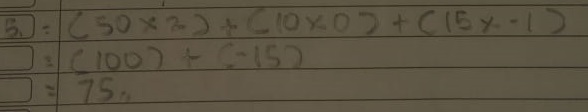 5. = (50 x 2) + (10 x 0) + (15 x -1)
= (100) + (-15)
= 75